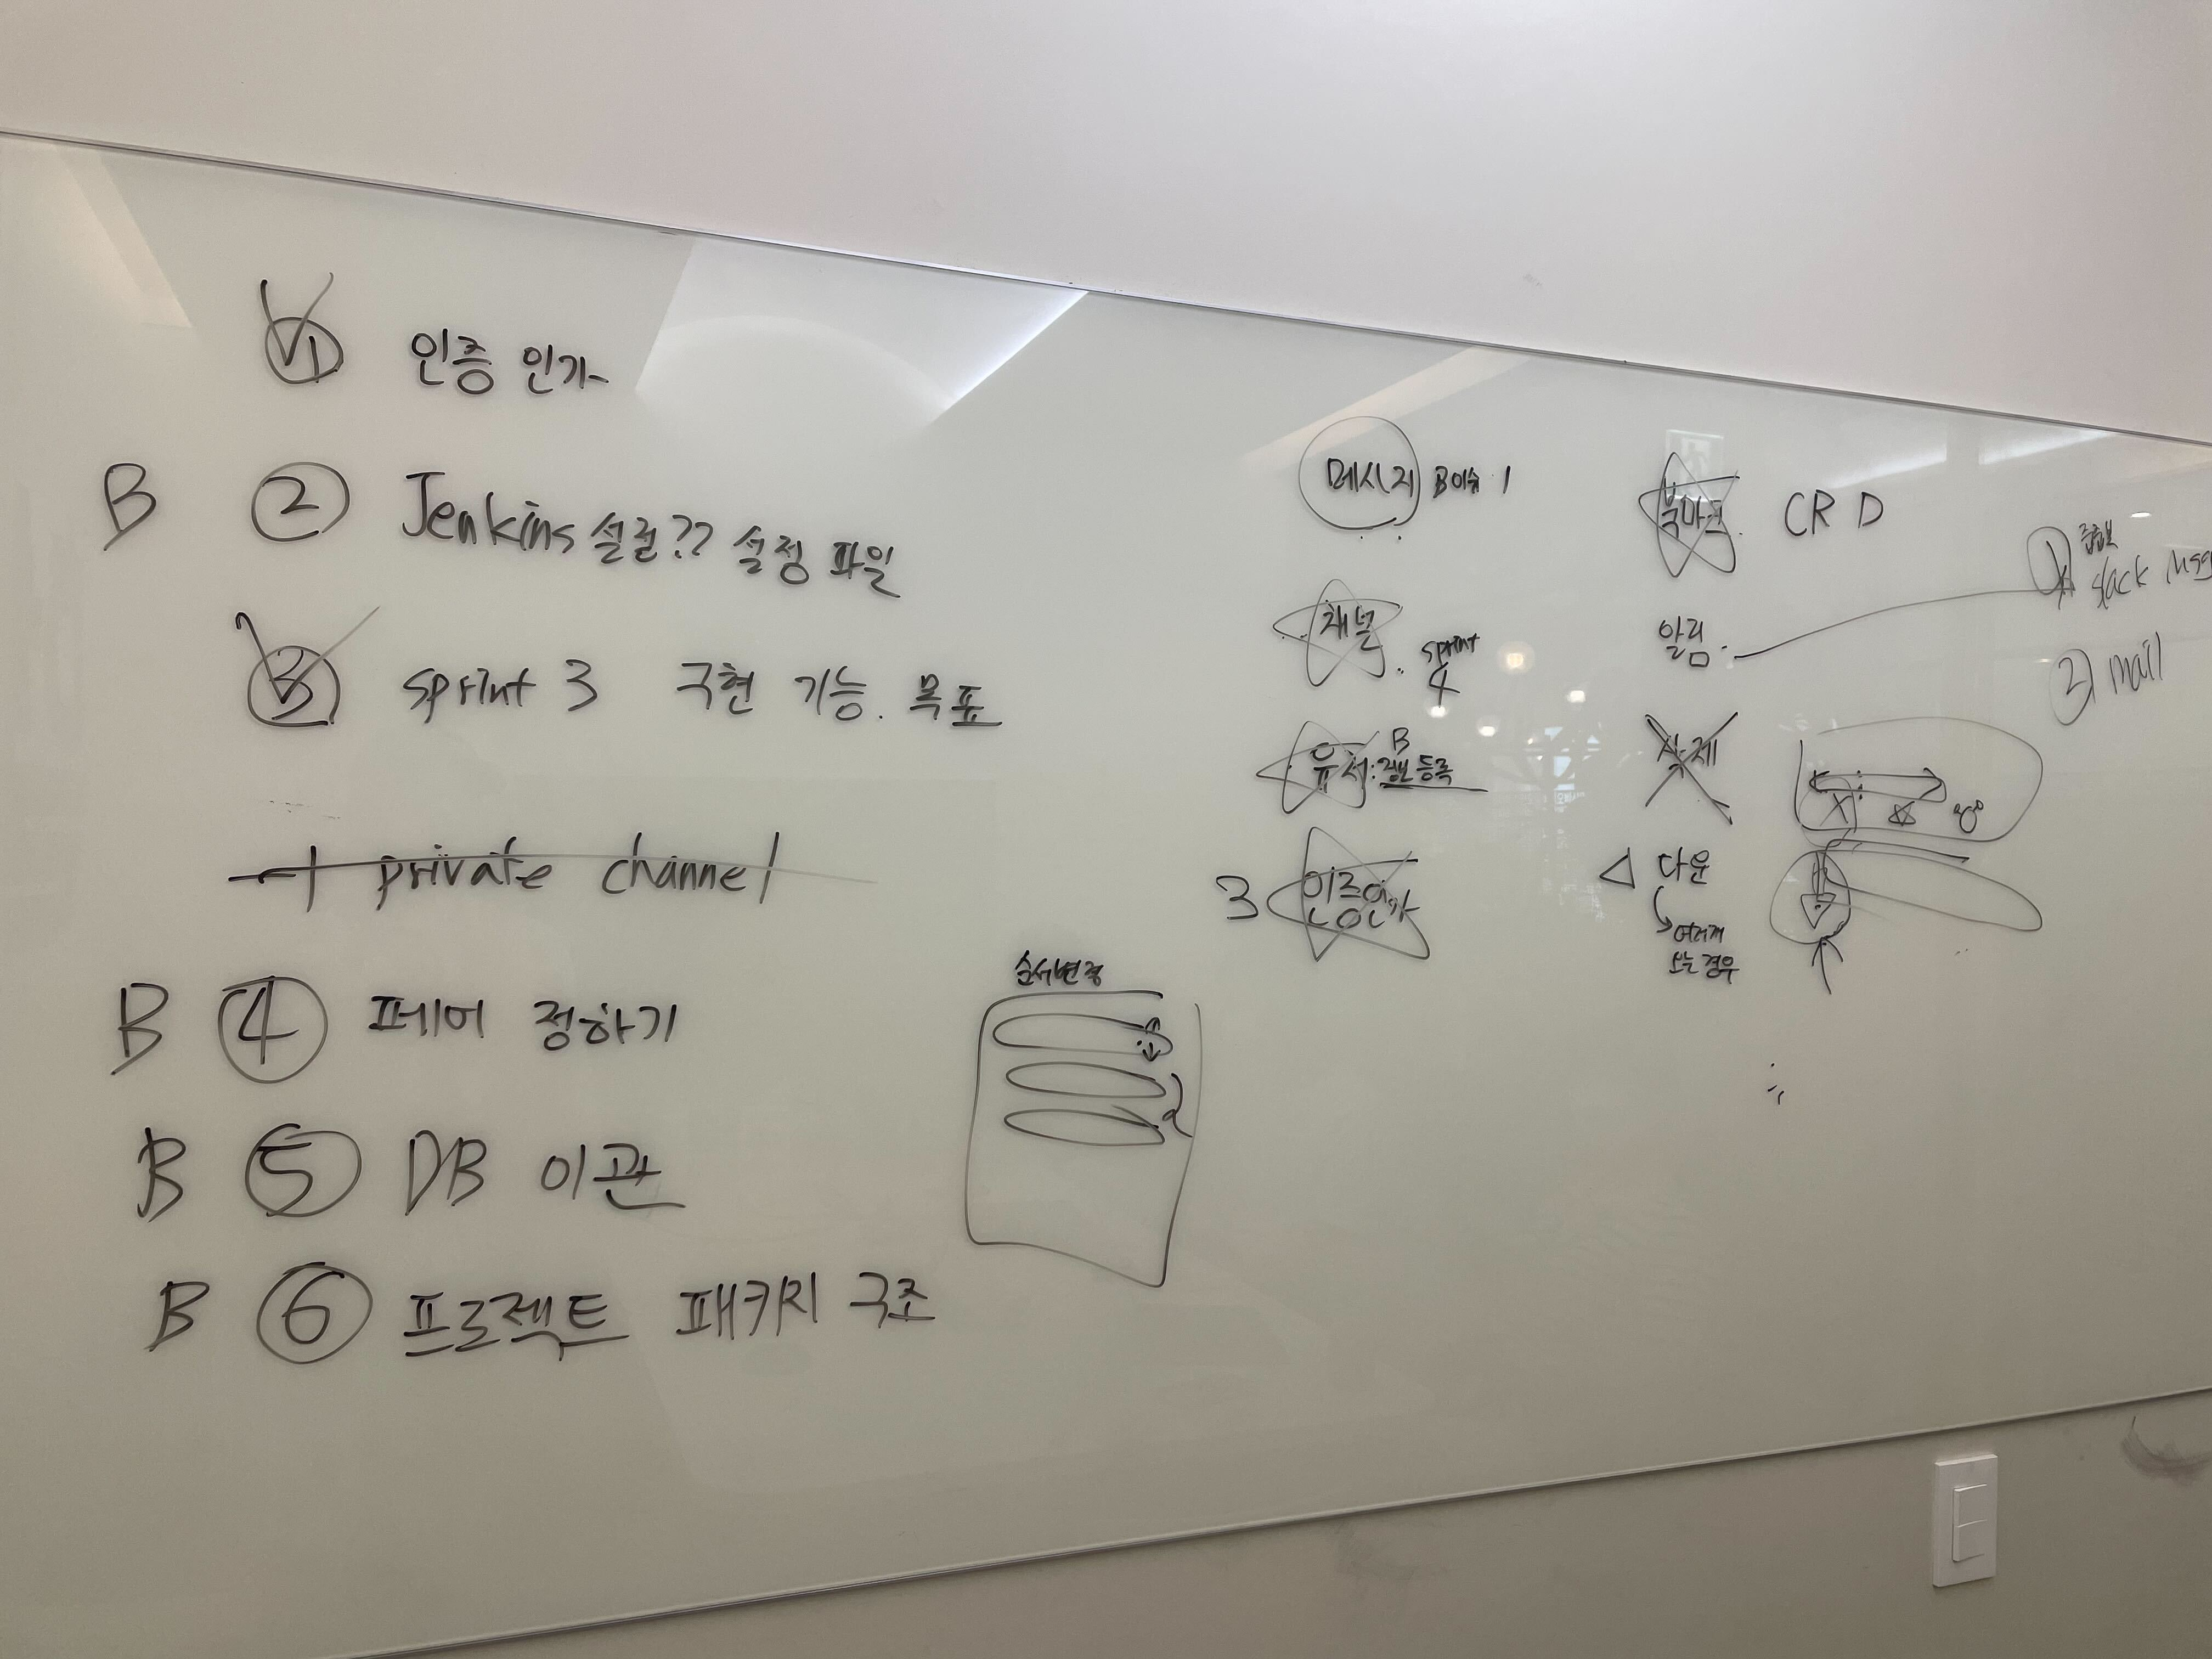 ① 인증 인가
B ② Jenkins 설정?? 설정 파일
③ sprint 3 구현 기능. 목표
+ private channel
B ④ 페어 정하기
B ⑤ DB 이관
B ⑥ 프로젝트 패키지 구조
순서변경
메시지 B이슈 1
채널 sprint 4
유저: B 정보 등록
3 인증인가
북마크. CRD
알림.
삭제
△ 다운
여러개
오는 경우
① slack msg
② mail